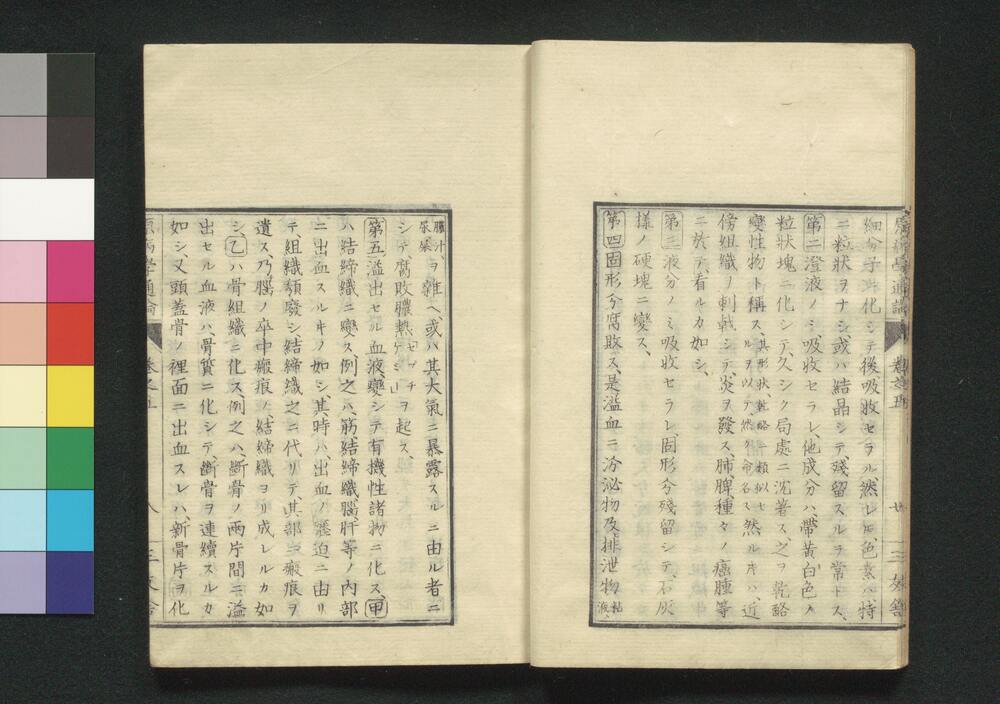 細分子ニ化シテ後吸收セラル然レ𪜈色素ハ特
ニ粒狀ヲナシ或ハ結晶シテ殘留スルヲ常トス、
第二澄液ノミ吸收セラレ他成分ハ帶黄白色ノ
粒狀塊ニ化シテ久シク局處ニ沈著ス、之ヲ乾酪
變性物ト稱ス、其形狀、乾酪ニ類似セルヲ以テ、然ク命名ス然ルキハ、近
傍組織ノ刺戟シテ、炎ヲ發ス、肺脾種々ノ癌腫等
ニ於テ、看ルカ如シ、
第三液分ノミ吸收セラレ固形分殘留シテ、石灰
樣ノ硬塊ニ變ス、
第四固形分腐敗ス、是溢血ニ汾泌物及排泄物粘液、
膿汁、尿屎ヲ雜ヘ、或ハ其大氣ニ暴露スルニ由ル者ニ
シテ腐敗膿熱ヲ起ス、
第五溢出セル血液變シテ有機性諸物ニ化ス、甲
ハ結締織ニ變ス、例之ハ、筋結締織、腦肝等ノ内部
ニ出血スルキノ如シ、其時ハ、出血ノ壓迫ニ由リ
テ、組織頽廢シ、結締織之ニ代リテ、其部ニ瘢痕ヲ
遺ス、乃腦ノ卒中瘢痕ノ、結締織ヨリ成レルカ如
シ、乙ハ骨組織ニ化ス、例之ハ、斷骨ノ兩片間ニ溢
出セル血液ハ、骨質ニ化シテ、斷骨ヲ連續スルカ
如シ、又頭蓋骨ノ裡面ニ出血スレハ、新骨片ヲ化
卷之五
八